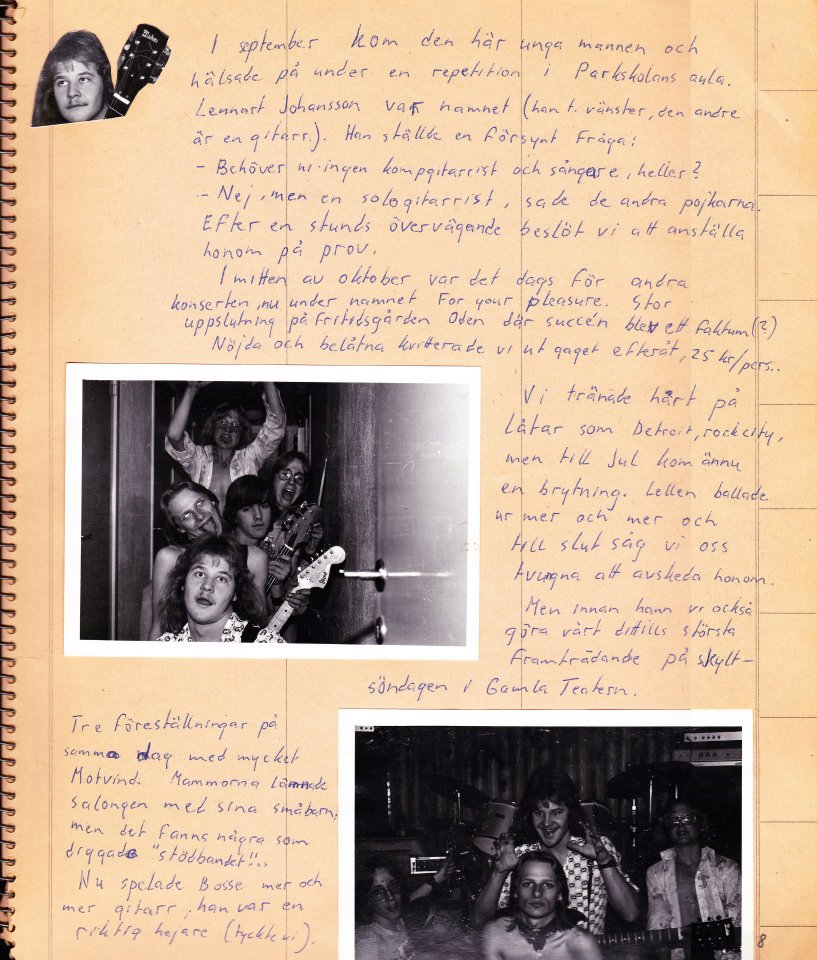 I september kom den här unga mannen och
hälsade på under en repetition i Parkskolans aula.
Lennart Johansson var namnet (han t. vänster, den andre
är en gitarr.). Han ställde en försynt fråga:
- Behöver ni ingen kompgitarrist och sångare, heller?
- Nej, men en sologitarrist, sade de andra pojkarna.
Efter en stunds övervägande beslöt vi att anställa
honom på prov.
I mitten av oktober var det dags för andra
konserten, nu under namnet For your pleasure. Stor
uppslutning på fritidsgården Oden där succén blev ett faktum(?)
Nöjda och belåtna kvitterade vi ut gaget efteråt, 25 kr/pers..
Vi tränade hårt på
låtar som Detroit, rock city,
men till Jul kom ännu
en brytning. Lellen ballade
ur mer och mer och
till slut såg vi oss
tvungna att avskeda honom.
Men innan hann vi också
göra vårt dittills största
framträdande på skylt-
söndagen i Gamla Teatern.
Tre föreställningar på
samma dag med mycket
Motvind. Mammorna lämnade
salongen med sina småbarn,
men det fanns några som
diggade "stödbandet"...
Nu spelade Bosse mer och
mer gitarr, han var en
riktig hejare (tyckte vi).
8